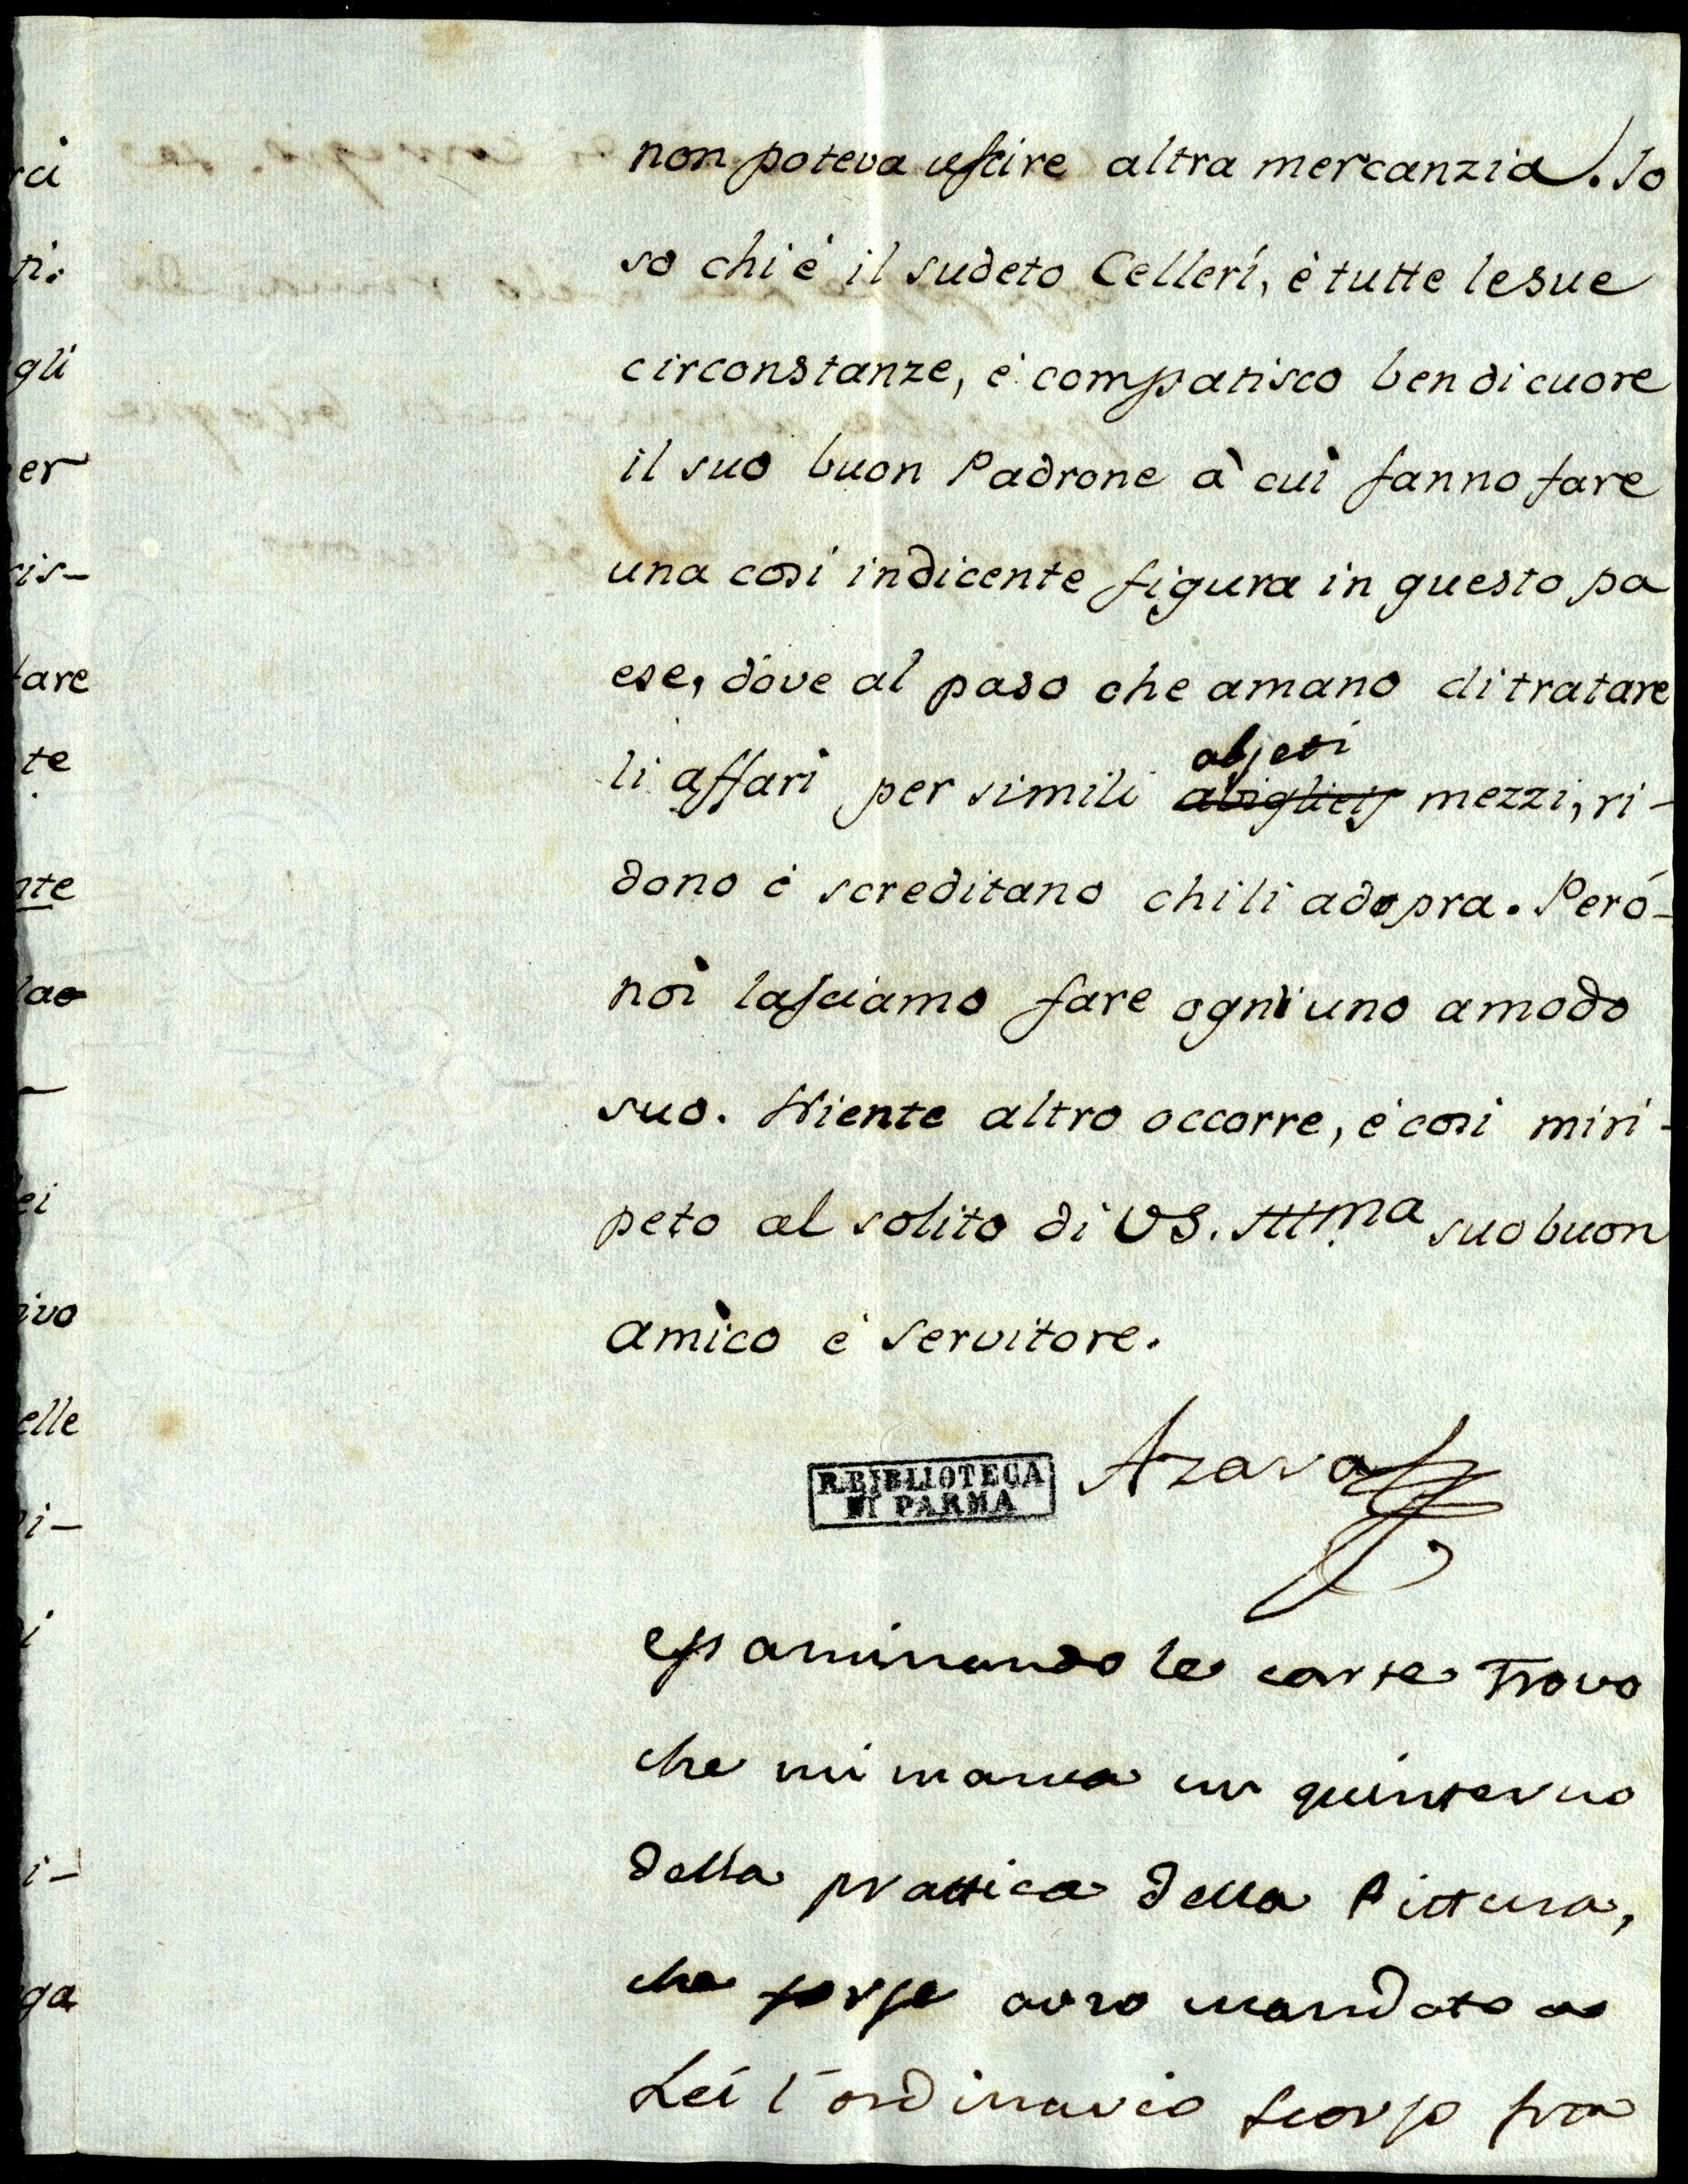 non poteva uscire altra mercanzia. Io
so chi è il sudeto Celleri, è tutte le sue
circonstanze, è compatisco ben di cuore
il suo buon Padrone à cui fanno fare
una cosi indicente figura in questo pa
ese, dove al paso che amano di tratare
abjeti
li affari per simili mezzi, ri-
dono è screditano chi li adopra. Peró-
noi lasciamo fare ogni uno a modo
suo. Niente altro occorre, è cosi mi ri-
peto al solito di VS. Illma suo buon
amico è servitore.
Azara
R. BIBLIOTECA
DI PARMA
essaminando le carte trovo
che mi manca un quinterno
della prattica della Pittura,
che forse avro mandato a
Lei l'ordinario scorso fra
ci
ti.
gli
er
ris-
tare
te
nte
lao
ei
ivo
elle
i-
i
i-
ga